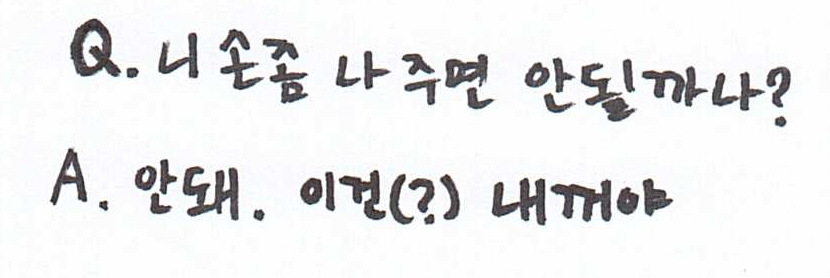 Q. 니 손좀 나 주면 안될까나?
A. 안돼. 이건(?) 내꺼야